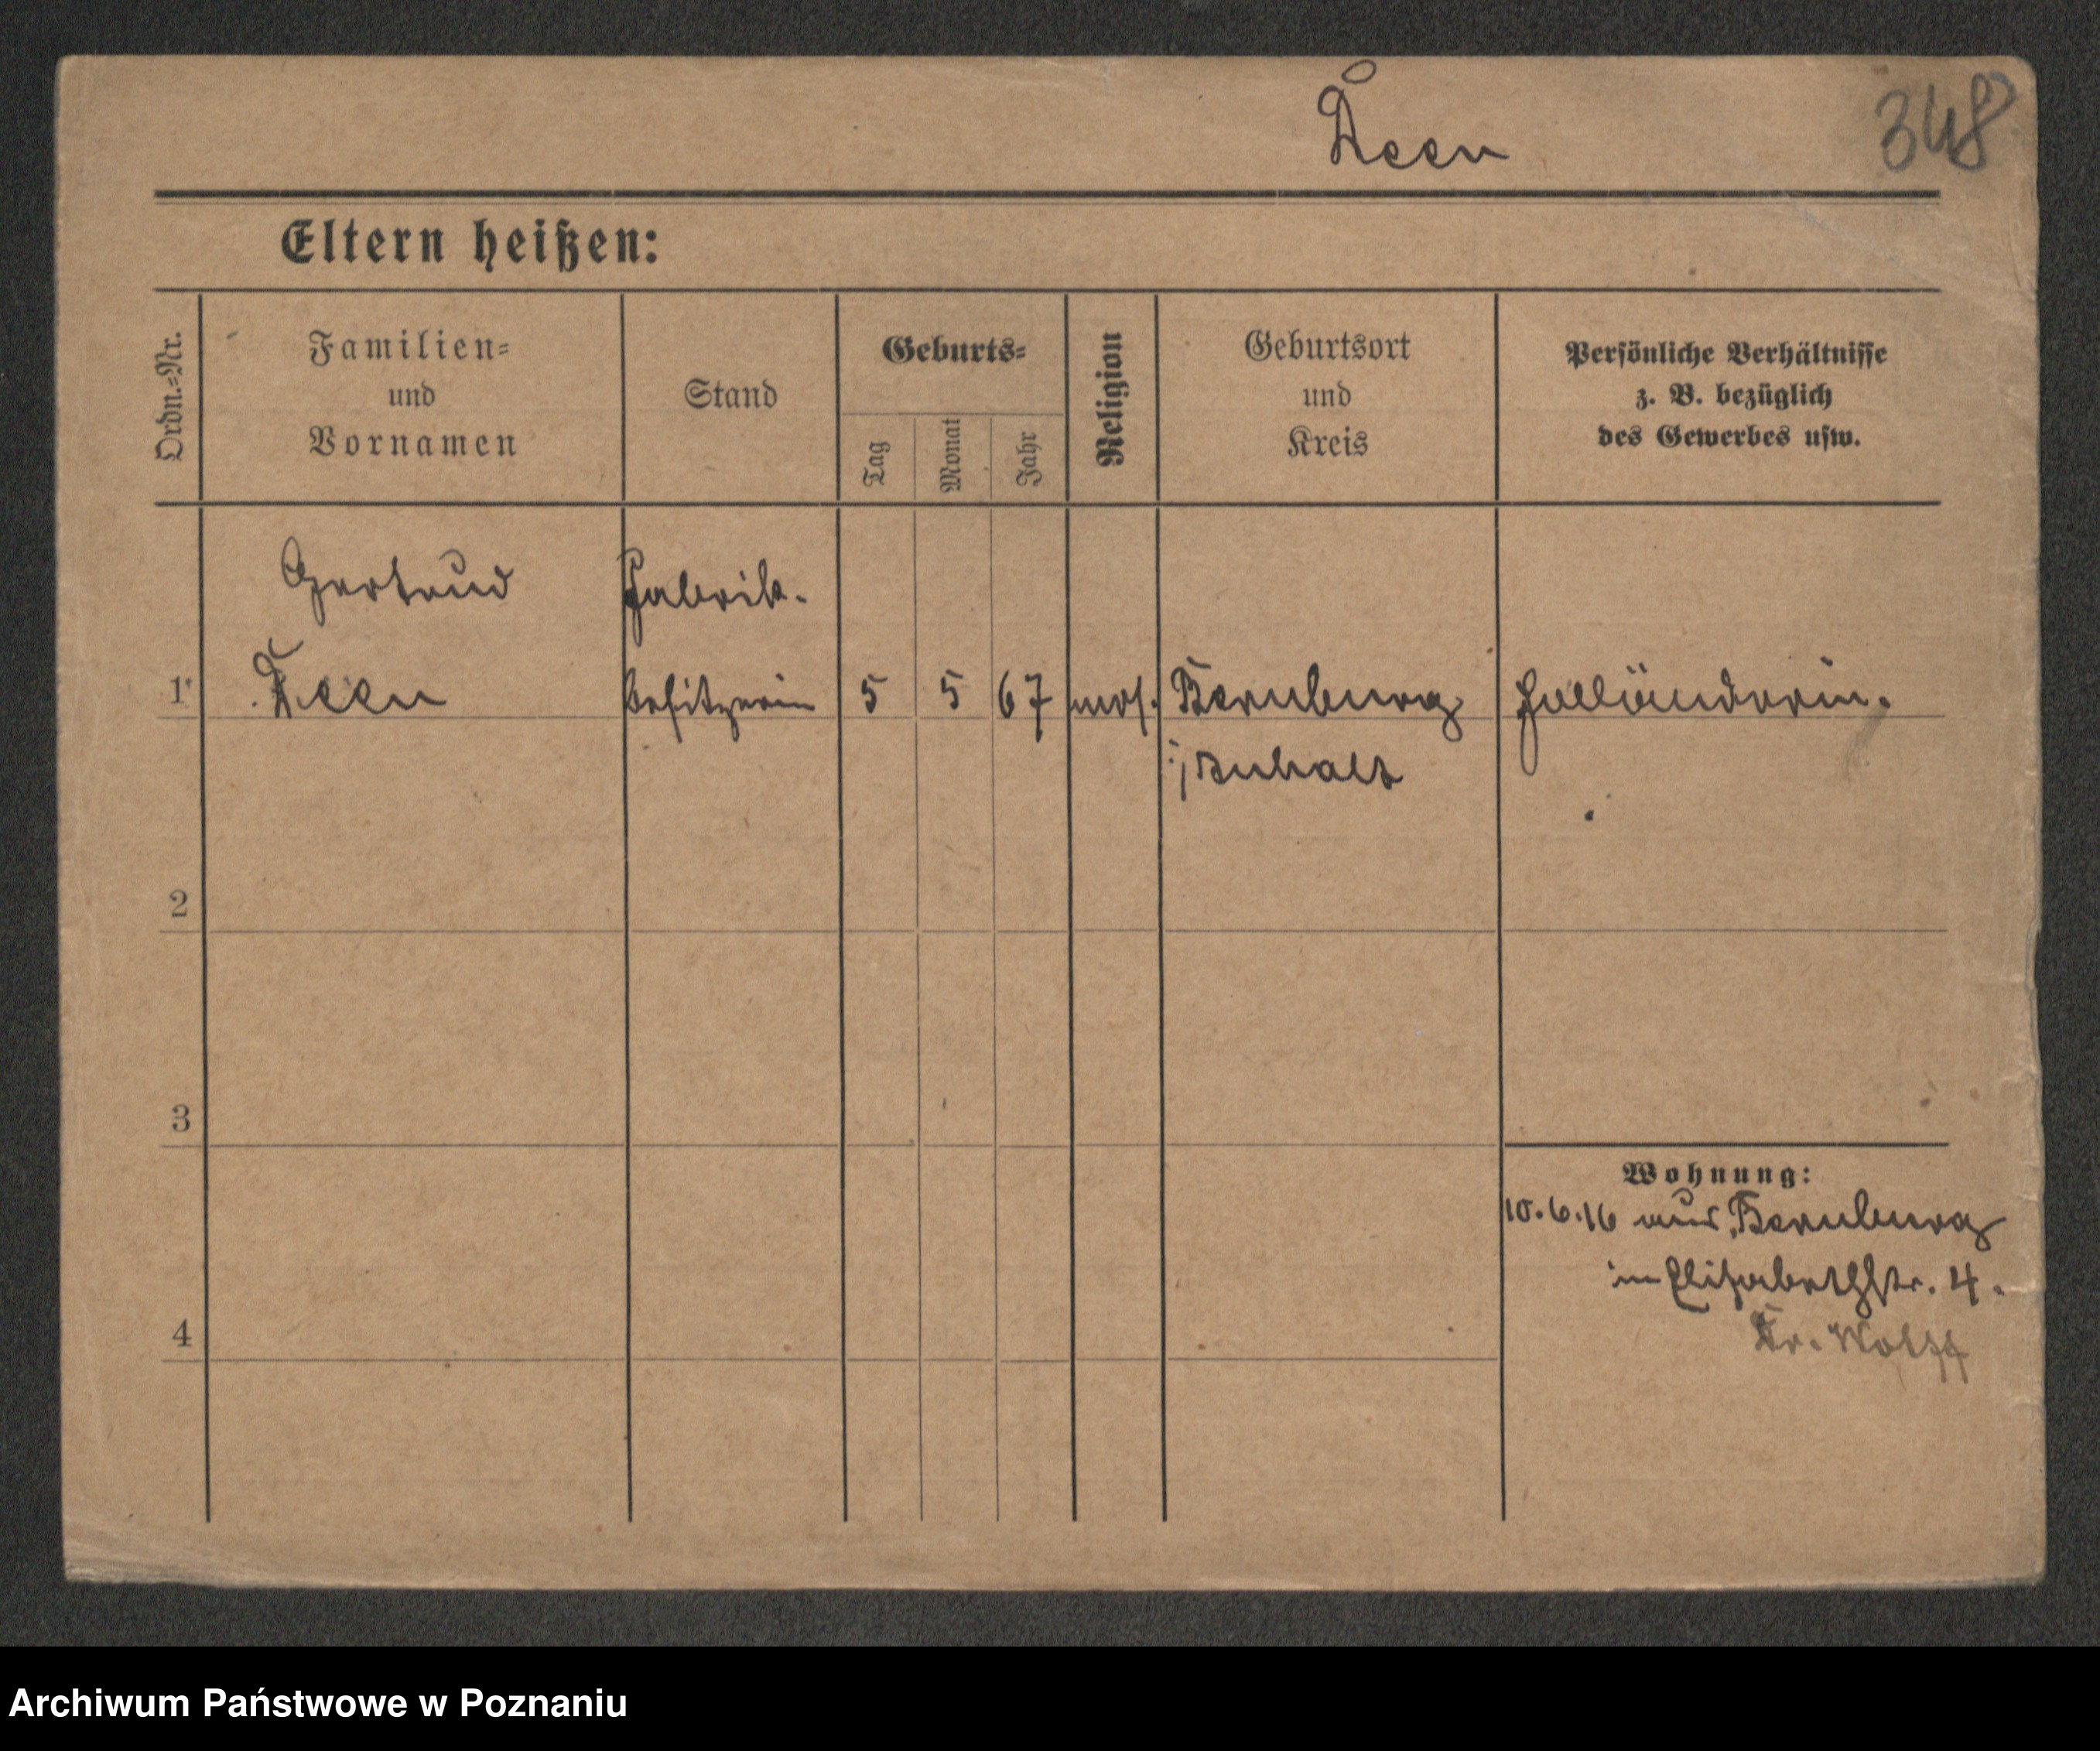 Deen
348
Eltern heißen:
Ordn.=Nr.
Familien=
und
Vornamen
Stand
Geburts=
Tag
Monat
Jahr
Religion
Geburtsort
und
Kreis
Persönliche Verhältnisse
z. B. bezüglich
des Gewerbes usw.
Gertrud Fabrik-
1 Deen besitzerin 5 5 67 mos. Bernburg Holländerin.
i/Anhalt
2
3
4
Wohnung:
10.6.16 aus Bernburg
in Elisabethstr. 4.
Dr. Wolff
Archiwum Państwowe w Poznaniu